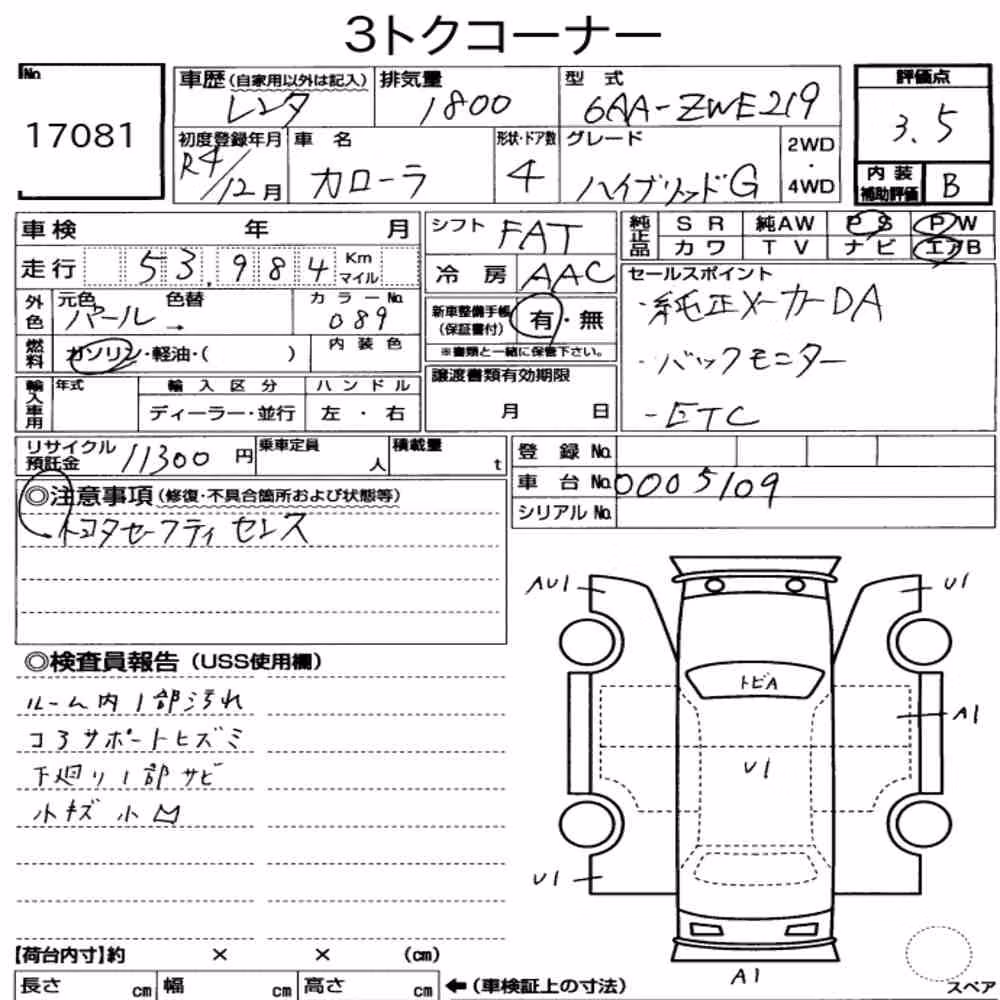 3トクコーナー
No.
17081
車歴(自家用以外は記入)
レンタ
排気量
1800
型 式
6AA-ZWE219
評価点
3.5
初度登録年月
R4/12月
車 名
カローラ
形状・ドア数
4
グレード
ハイブリッドG
2WD
・
4WD
内 装
補助評価
B
車検 年 月
シフト FAT
純正品
SR 純AW PS PW
カワ TV ナビ エアB
走行 53,984 Km マイル
冷 房 AAC
セールスポイント
・純正メーカーDA
・バックモニター
・ETC
外色
元色 色替
パール →
カラーNo.
089
新車整備手帳
(保証書付)
有・無
※書類と一緒に保管下さい。
燃料
ガソリン・軽油・( )
内装色
輸入車用
年式
輸入区分
ディーラー・並行
ハンドル
左・右
譲渡書類有効期限
月 日
リサイクル
預託金
11300円
乗車定員
人
積載量
t
登録No.
車台No. 0005109
シリアルNo.
◎注意事項(修復・不具合箇所および状態等)
トヨタセーフティセンス
◎検査員報告(USS使用欄)
ルーム内1部汚れ
コアサポートヒズミ
下廻り1部サビ
小キズ 小凹
AU1
U1
トビA
A1
U1
U1
A1
【荷台内寸】約 × × (cm)
長さ cm 幅 cm 高さ cm ←(車検証上の寸法)
スペア